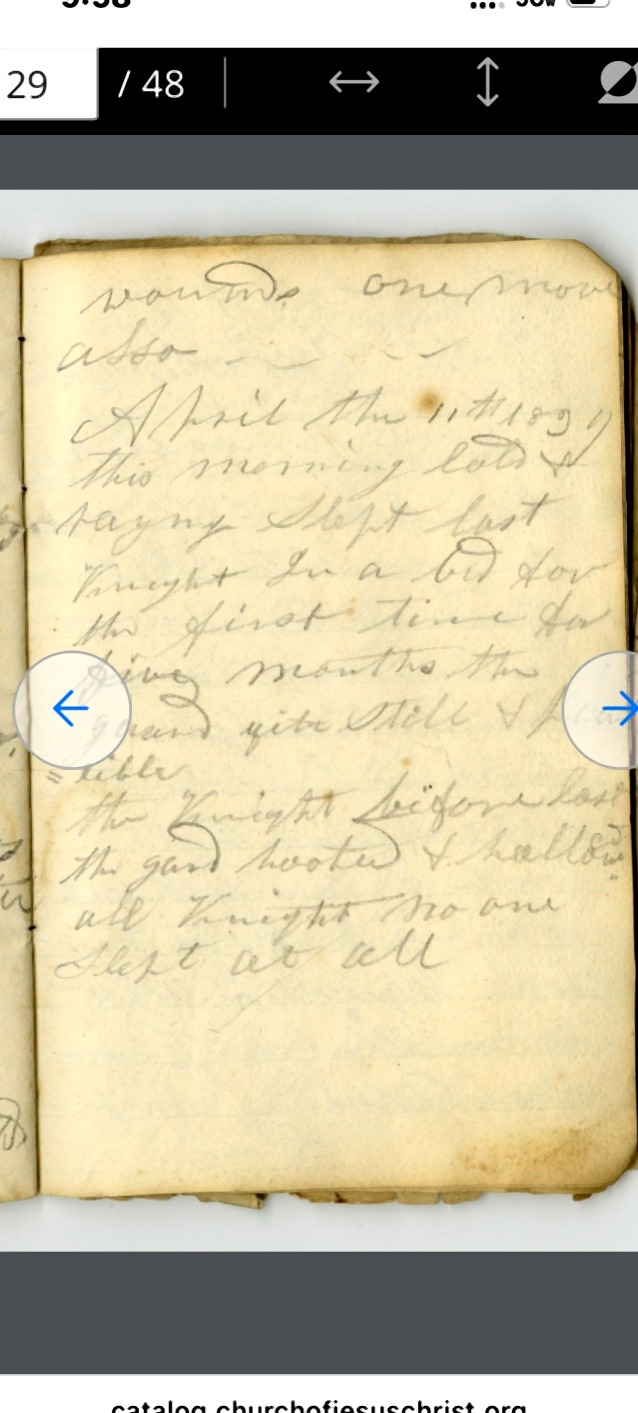 9:38
29 / 48
wounds one more
allso
April the 11th 1839
this morning cold &
rayny Slept last
Knight In a bed for
the first time for
five months the
guard qite Still &
= cible
the Knight before last
the gard hooted & hallow
all Knight no one
Slept at all
catalog.churchofjesuschrist.org